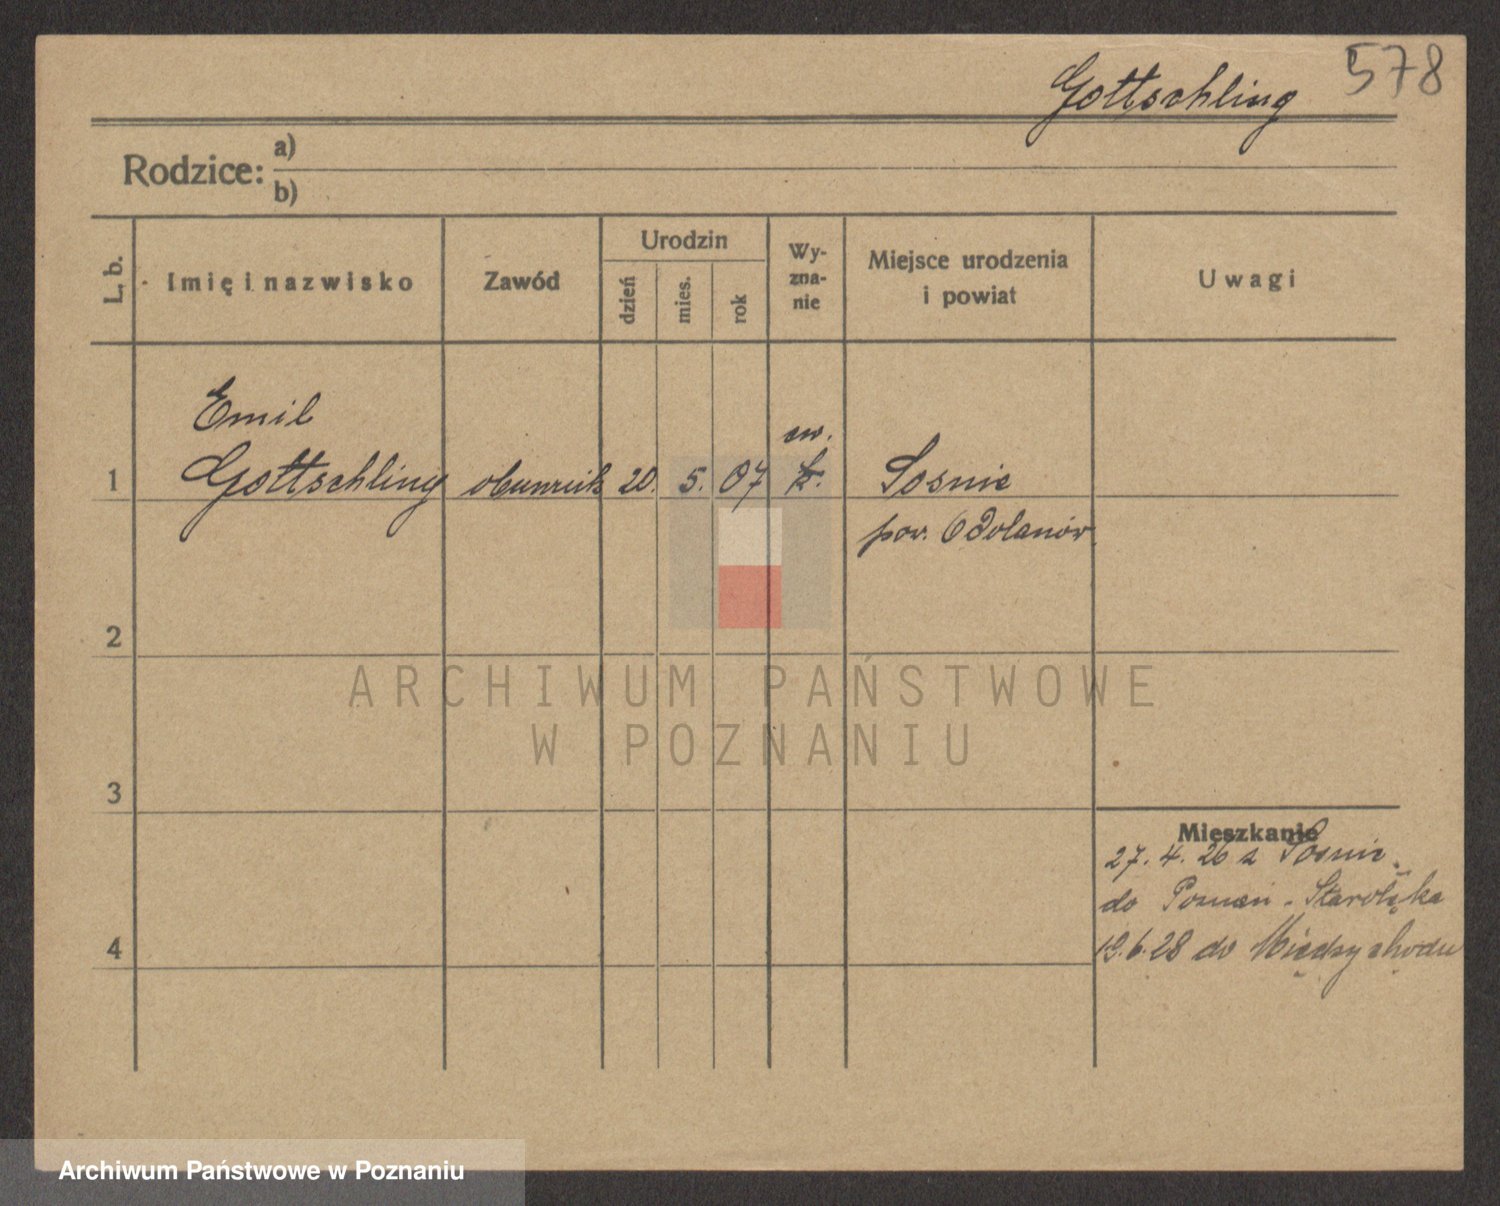 578
Gottschling
Rodzice: a)
b)
L. b.
Imię i nazwisko
Zawód
Urodzin
dzień
mies.
rok
Wy-
zna-
nie
Miejsce urodzenia
i powiat
Uwagi
Emil
ew.
1 Gottschling 20. 5. 07 k. Sośnie
pow. Odolanów.
2
ARCHIWUM PAŃSTWOWE
W POZNANIU
3
Mieszkanie
27. 4. 26 z Sośnie
do Poznań - Starołęka
4 19.6.28 do Międzychodu
Archiwum Państwowe w Poznaniu